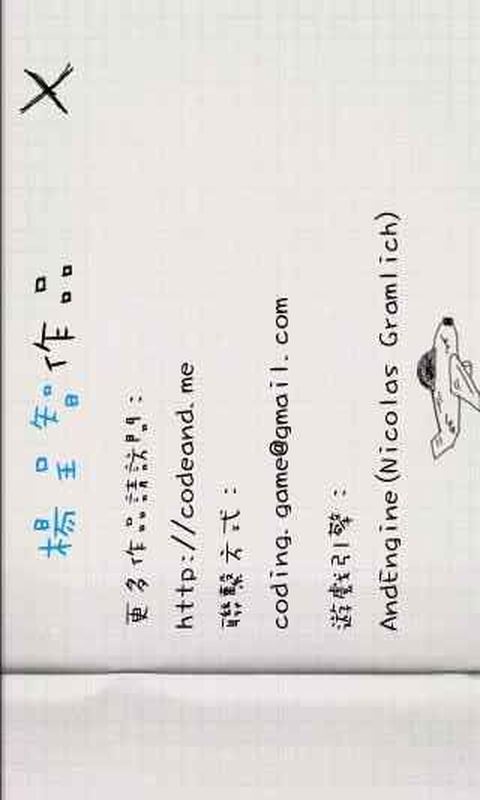 楊呈智作品
更多作品請訪問：
http://codeand.me
聯繫方式：
coding.game@gmail.com
遊戲引擎：
AndEngine(Nicolas Gramlich)